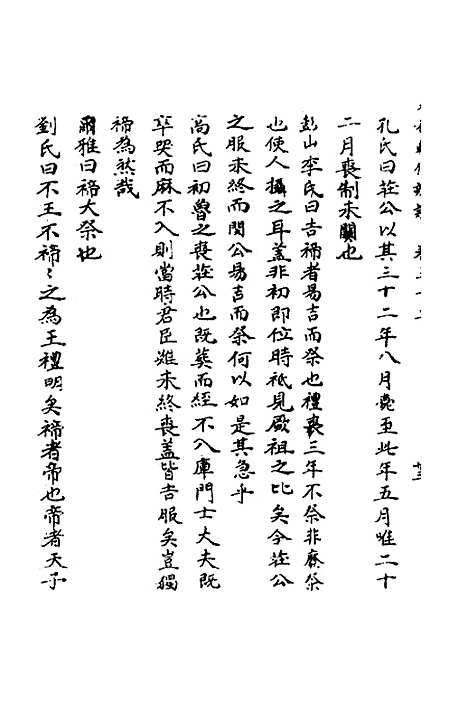 孔氏曰莊公以其三十二年八月薨至此年五月唯二十
二月喪制未闋也
彭山李氏曰吉禘者易吉而祭也禮喪三年不祭非廢祭
也使人攝之耳蓋非初即位時祗見厥祖之比矣今莊公
之服未終而閔公易吉而祭何以如是其急乎
高氏曰初魯之喪莊公也既葬而絰不入庫門士大夫既
卒哭而麻不入則當時君臣雖未終喪蓋皆吉服矣豈獨
禘為然哉
爾雅曰禘大祭也
劉氏曰不王不禘〻之為王禮明矣禘者帝也帝者天子